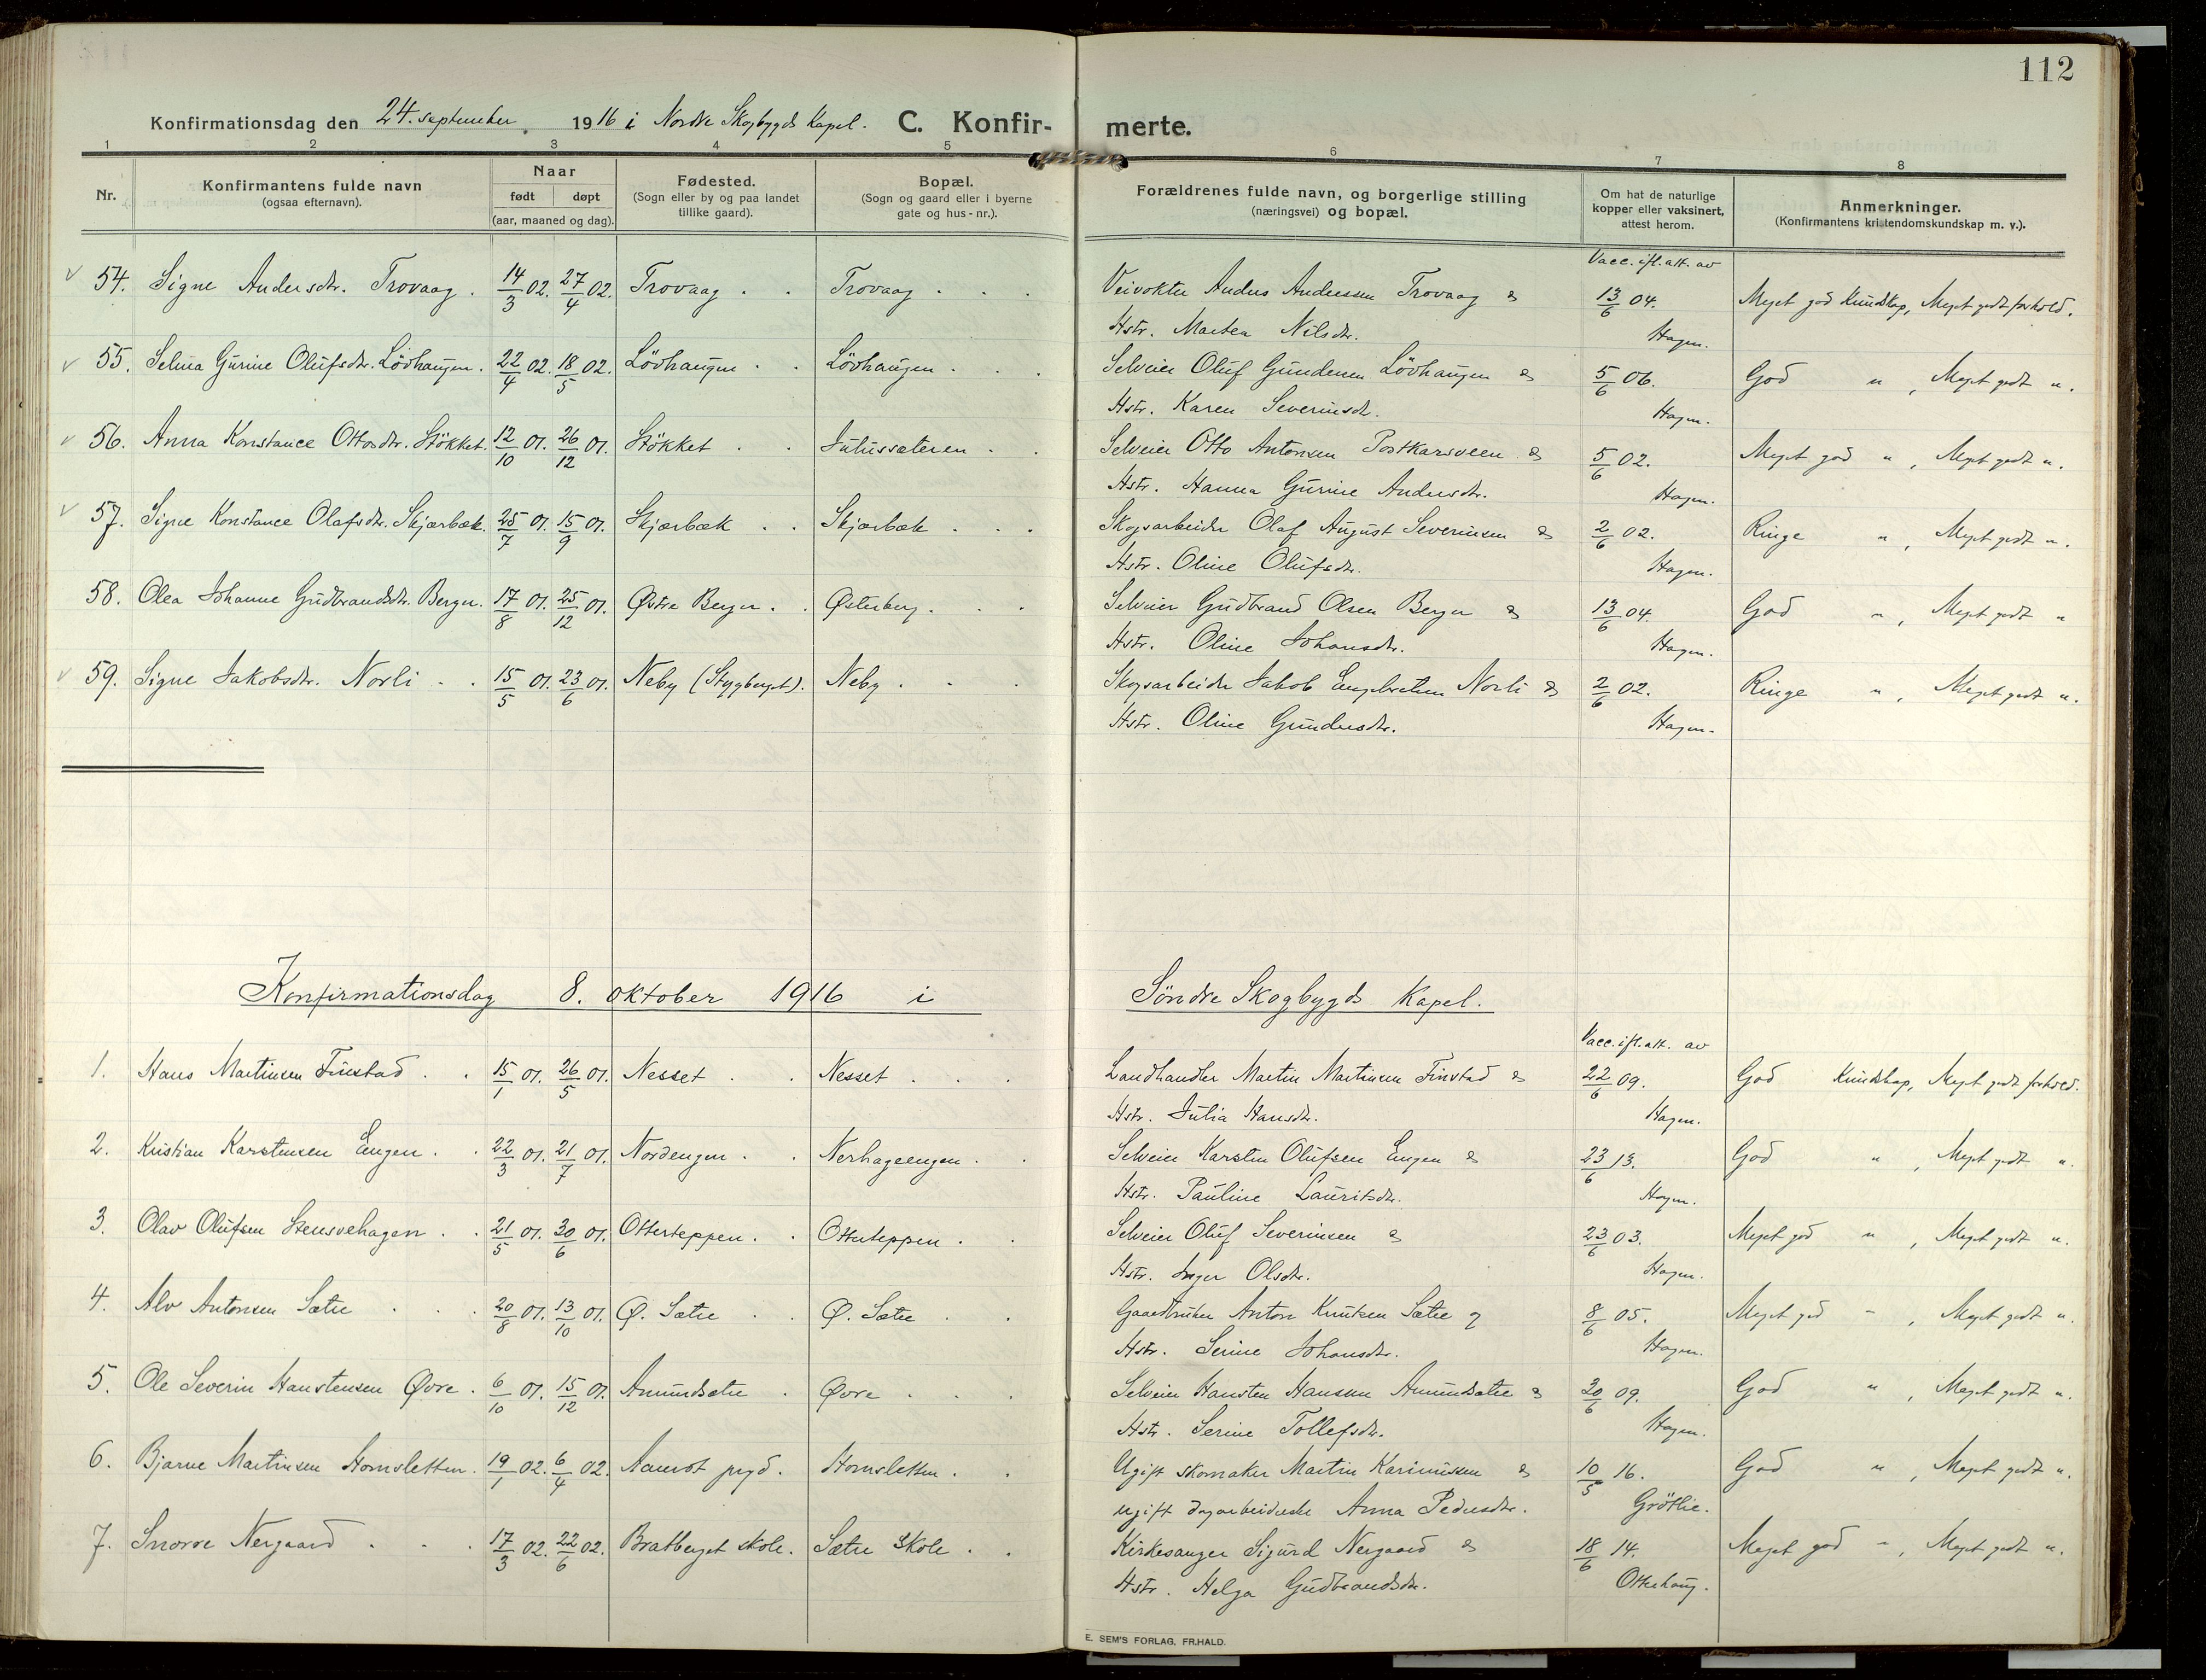 112
Konfirmationsdag den 24. september. 1916 i Nordre Skogbygds Kapel. C. Konfir- merte.
1 2 3 4 5 6 7 8
Nr. Konfirmantens fulde navn (ogsaa efternavn). Naar født døpt (aar, maaned og dag). Fødested. (Sogn eller by og paa landet tillike gaard). Bopæl. (Sogn og gaard eller i byerne gate og hus-nr.). Forældrenes fulde navn, og borgerlige stilling (næringsvei) og bopæl. Om hat de naturlige kopper eller vaksinert, attest herom. Anmerkninger. (Konfirmantens kristendomskundskap m. v.).
Vacc. ifl. att. av
54. Signe Andersdtr. Trovaag. 14/3 02. 27/4 02. Trovaag . . Trovaag . . . Veivokter Anders Anderssen Trovaag & 13/6 04. Meget god Kundskap, Meget godt forhold.
Hstr. Martea Nilsdtr. Hagen.
55. Selma Gurine Olufsdtr. Lövhaugen. 22/4 02. 18/5 02. Lövhaugen . . Lövhaugen . . . Selveier Oluf Gundersen Lövhaugen & 5/6 06. God " , Meget godt ".
Hstr. Karen Severinsdtr. Hagen.
56. Anna Konstance Ottosdtr. Stökket. 12/10 01. 26/12 01. Stökket . . Julussæteren . . Selveier Otto Antonsen Postkarsveen & 5/6 02. Meget god " , Meget godt ".
Hstr. Hanna Gurine Andersdtr. Hagen.
57. Signe Konstance Olafsdtr. Skjærbæk. 25/7 01. 15/9 01. Skjærbæk . . Skjærbæk . . . Skogsarbeider Olaf August Severinsen & 2/6 02. Ringe " , Meget godt ".
Hstr. Oline Olufsdtr. Hagen.
58. Olea Johanne Gudbrandsdtr. Berger. 17/8 01. 25/12 01. Østre Berger . . Østerberg . . . Selveier Gudbrand Olsen Berger & 13/6 04. God " , Meget godt "
Hstr. Oline Johansdtr. Hagen.
59. Signe Jakobsdtr. Norli . . 15/5 01. 23/6 01. Neby (Stygberget). Neby . . . Skogsarbeider Jakob Engebretsen Norli & 2/6 02. Ringe " , Meget godt ".
Hstr. Oline Gundersdtr. Hagen.
Konfirmationsdag 8. oktober 1916 i Söndre Skogbygds Kapel.
Vacc. ifl. att. av
1. Hans Martinsen Finstad . . 15/1 01. 26/5 01. Nesset . . Nesset . . . Landhandler Martin Martinsen Finstad & 22/6 09. God Kundskap, Meget godt forhold.
Hstr. Julia Hansdtr. Hagen.
2. Kristian Karstensen Engen . . 22/3 01. 21/7 01. Nordengen . . Nerhageengen . . Selveier Karsten Olufsen Engen & 23/6 13. God " , Meget godt ".
Hstr. Pauline Lauritsdtr. Hagen.
3. Olav Olufsen Stensvehagen . . 21/5 01. 30/6 01. Otterteppen . . Otterteppen . . Selveier Oluf Severinsen & 23/6 03. Meget god " , Meget godt ".
Hstr. Inger Olsdtr. Hagen.
4. Alv Antonsen Sætre . . . 20/8 01. 13/10 01. Ø. Sætre . . Ø. Sætre . . Gaardbruker Anton Knutsen Sætre og 8/6 05. Meget god " , Meget godt ".
Hstr. Serine Johansdtr. Hagen.
5. Ole Severin Hanstensen Øvre . 6/10 01. 15/12 01. Amundsætre . Øvre . . . Selveier Hansten Hansen Amundsætre & 30/6 09. God " , Meget godt ".
Hstr. Serine Tollefsdtr. Hagen.
6. Bjarne Martinsen Hornsletten . 19/1 02. 6/4 02. Aamot prgd. Hornsletten . . Ugift skomaker Martin Karinussen & 10/5 16. God " , Meget godt ".
ugift dagarbeiderske Anna Pedersdtr. Gröttie.
7. Snorre Nergaard . . . 17/3 02. 22/6 02. Bratberget skole. Sætre Skole . . Kirkesanger Sigurd Nergaard & 18/6 14. Meget god " , Meget godt ".
Hstr. Helga Gudbrandsdtr. Otterhaug.
E. SEM'S FORLAG, FR.HALD.